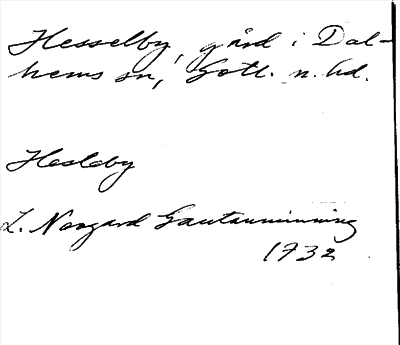 Hesselby, gård i Dal-
hems sn, Gotl. n. hd.
Hesleby
L. Norgard Gautauminning
1732